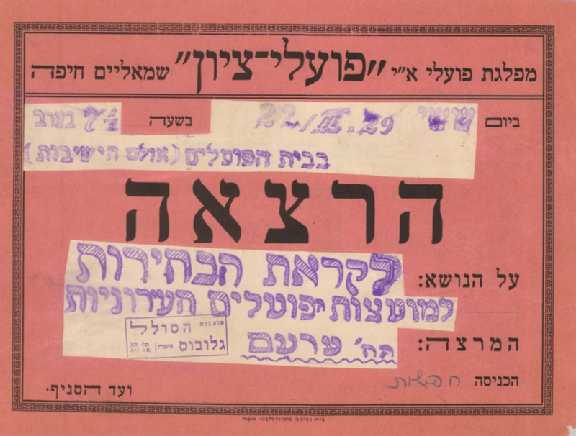 מפלגת פועלי א״י "פועלי־ציון" שמאליים חיפה
ביום ששי 22/III.29 בשעה 7½ בערב
בבית הפועלים (אולם הישיבות)
הרצאה
על הנושא: לקראת הבחירות
למועצות פועלים העירוניות
המרצה: הח'
הכניסה חפשית
ועד הסניף.
הסולל
גלובוס